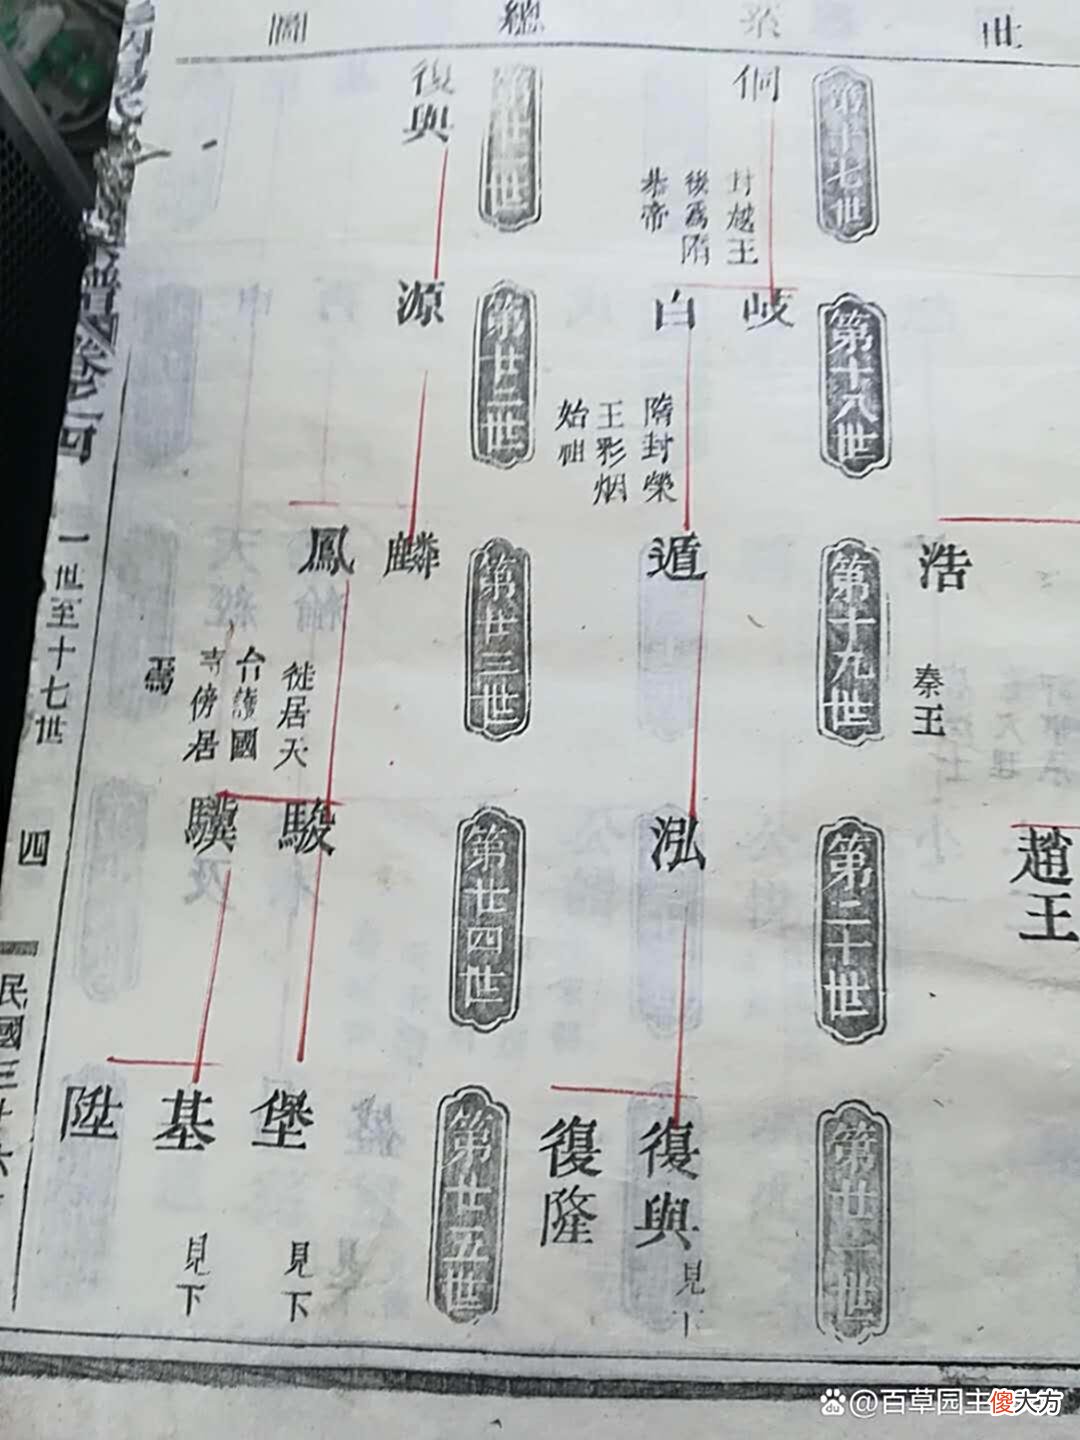 世系總圖
第十七世
侗
封越王
後爲隋
恭帝
第十八世
岐
白
隋封榮
王彩烟
始祖
第十九世
浩
秦王
遁
第二十世
趙王
泓
第廿一世
復興
見下
復隆
第廿一世
復興
第廿二世
源
第廿三世
麟
鳳
徙居天
台護國
寺傍居
焉
第廿四世
駿
驥
第廿五世
堡
見下
基
見下
陞
卷之四
一世至十七世
四
民國三十六
@百草园主傻大方